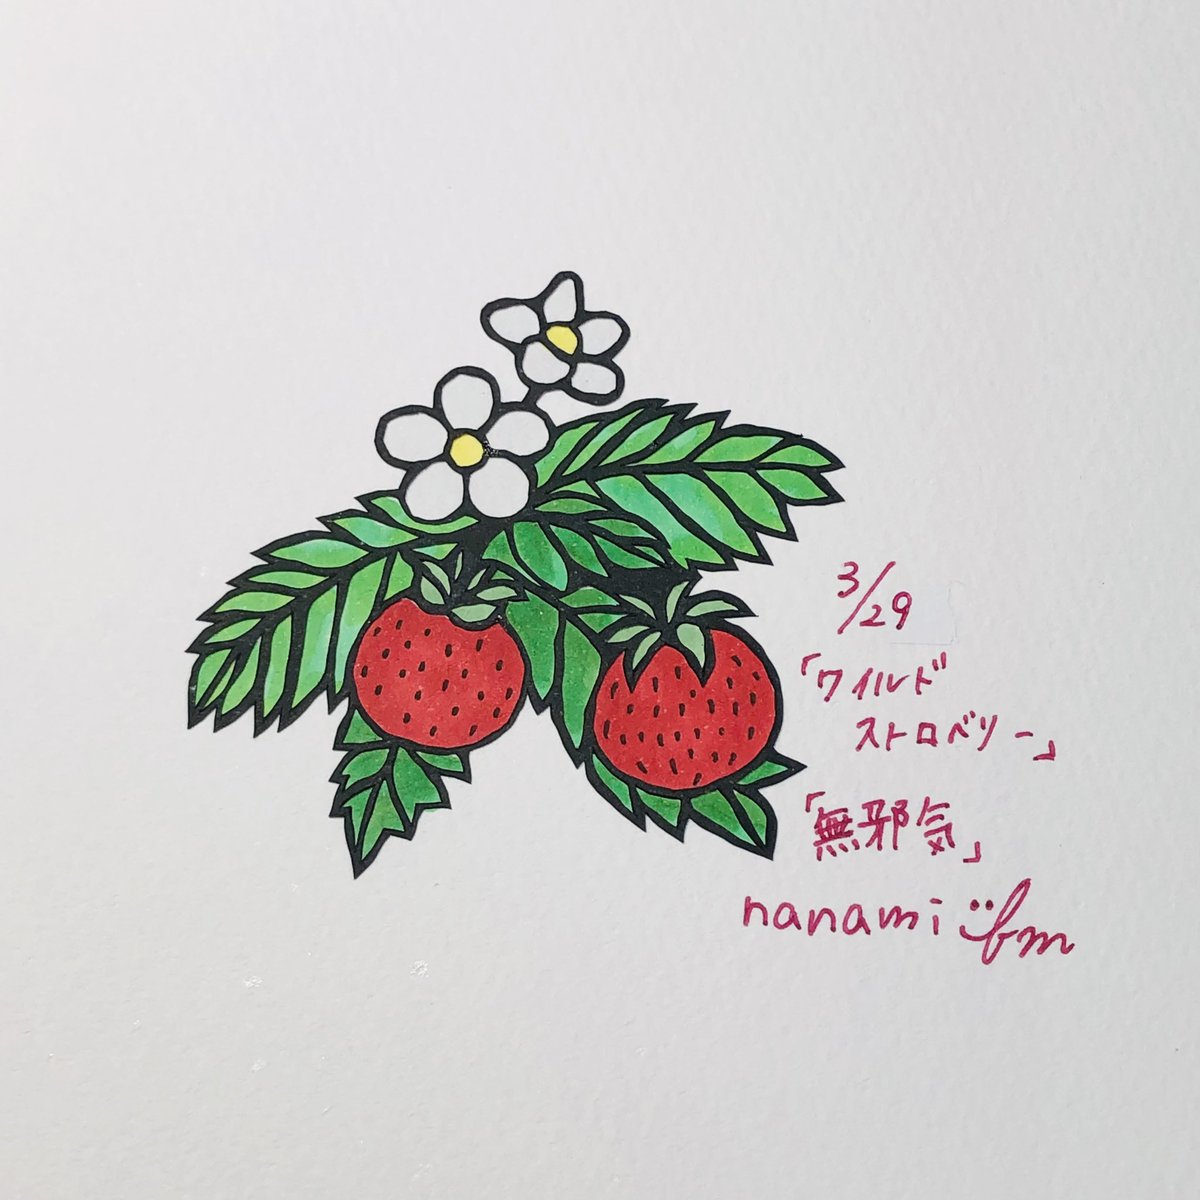 3/29
「ワイルド
ストロベリー」
「無邪気」
nanami fm